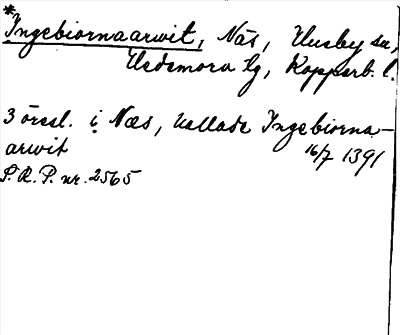 *Ingebiornaarwit, Näs, Husby sn,
Hedemora tg, Kopparb. l.
3 öresl. i Næs, kallade Ingebiorna-
arwit 16/7 1391
S.R.P. nr. 2565